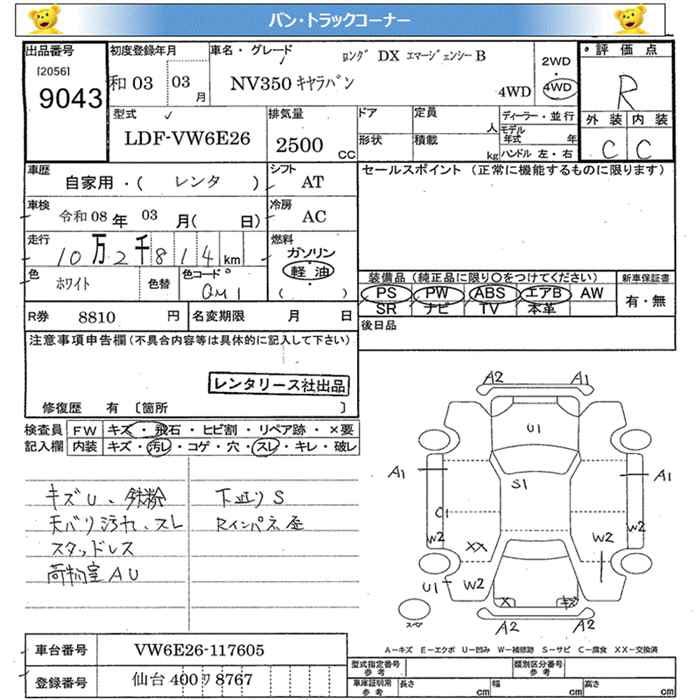 バン・トラックコーナー
出品番号 初度登録年月 車名・グレード ロング DX エマージェンシー B 2WD ・評価点
[2056] 和 03 03 月 NV350 キャラバン 4WD 4WD R
9043
型式 排気量 ドア 定員 人 ディーラー・並行 外装 内装
LDF-VW6E26 2500 CC 形状 積載 kg モデル年式 年 C C
ハンドル 左・右
車歴 シフト セールスポイント (正常に機能するものに限ります)
自家用・( レンタ ) AT
車検 冷房
令和 08 年 03 月( 日) AC
走行 燃料
10万2千814 km ガソリン
軽油
( )
色 ホワイト 色替 色コード QM1
装備品 (純正品に限り○をつけてください) 新車保証書
PS PW ABS エアB AW 有・無
SR ナビ TV 本革
R券 8810 円 名変期限 月 日
後日品
注意事項申告欄 (不具合内容等は具体的に記入して下さい)
レンタリース社出品
修復歴 有 〔箇所 〕
検査員 FW キズ・飛石・ヒビ割・リペア跡・×要
記入欄 内装 キズ・汚レ・コゲ・穴・スレ・キレ・破レ
キズU、鉄粉 下廻りS
天バリ汚れ、スレ Rインパネ歪
スタッドレス
荷物室AU
A2 A1
U1
A1 S1 A1
C1
W2 W2 W2
XX
U1 W2
X キズ
スペア A2 A2
A-キズ E-エクボ U-凹み W-補修跡 S-サビ C-腐食 XX-交換済
車台番号 VW6E26-117605
登録番号 仙台 400 ワ 8767
型式指定番号 参考 類別区分番号 参考
車庫証明用 参考 長さ cm 幅 cm 高さ cm